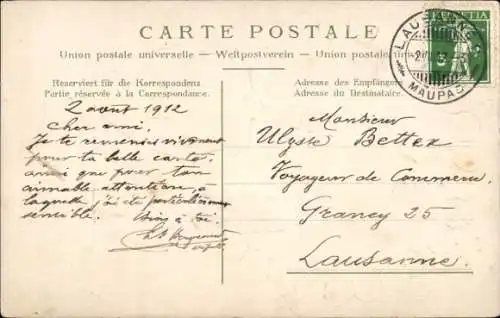 CARTE POSTALE
Union postale universelle — Weltpostverein — Union postale un
Reserviert für die Korrespondenz
Partie réservée à la Correspondance.
Adresse des Empfängers
Adresse du Destinataire.
HELVETIA
LAUSANNE
MAUPAS
2 août 1912
Cher ami.
Je te remercie vivement
pour ta belle carte
ainsi que pour ton
aimable attention, à
laquelle j'ai été particulièrement
sensible.
Bien à toi
Monsieur
Ulysse Bettex
Voyageur de Commerce.
Grancy 25
Lausanne.